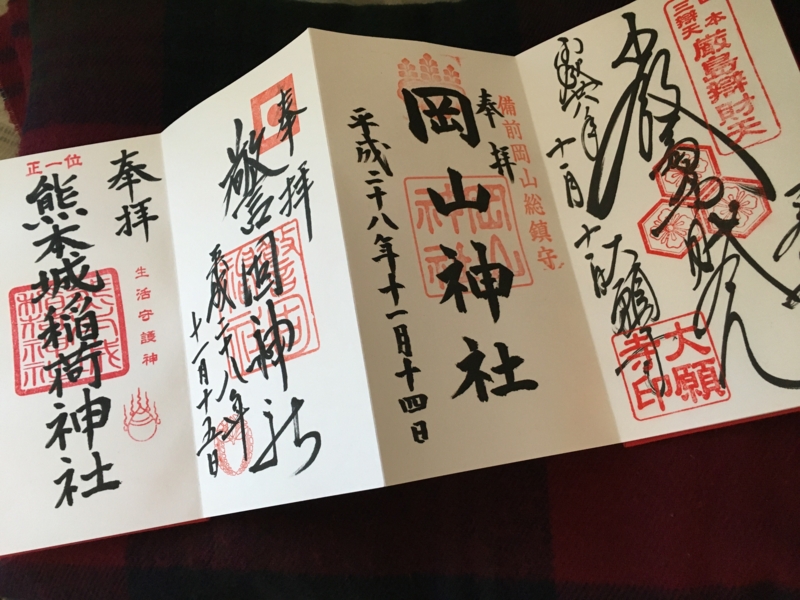 三辯天
厳島辯財天
大願寺
大願
寺印
備前岡山総鎮守
奉拝
岡山神社
岡山
神社
平成二十八年十一月十四日
奉拝
警固神社
平成二十八年
十一月十五日
奉拝
生活守護神
正一位
熊本城稲荷神社